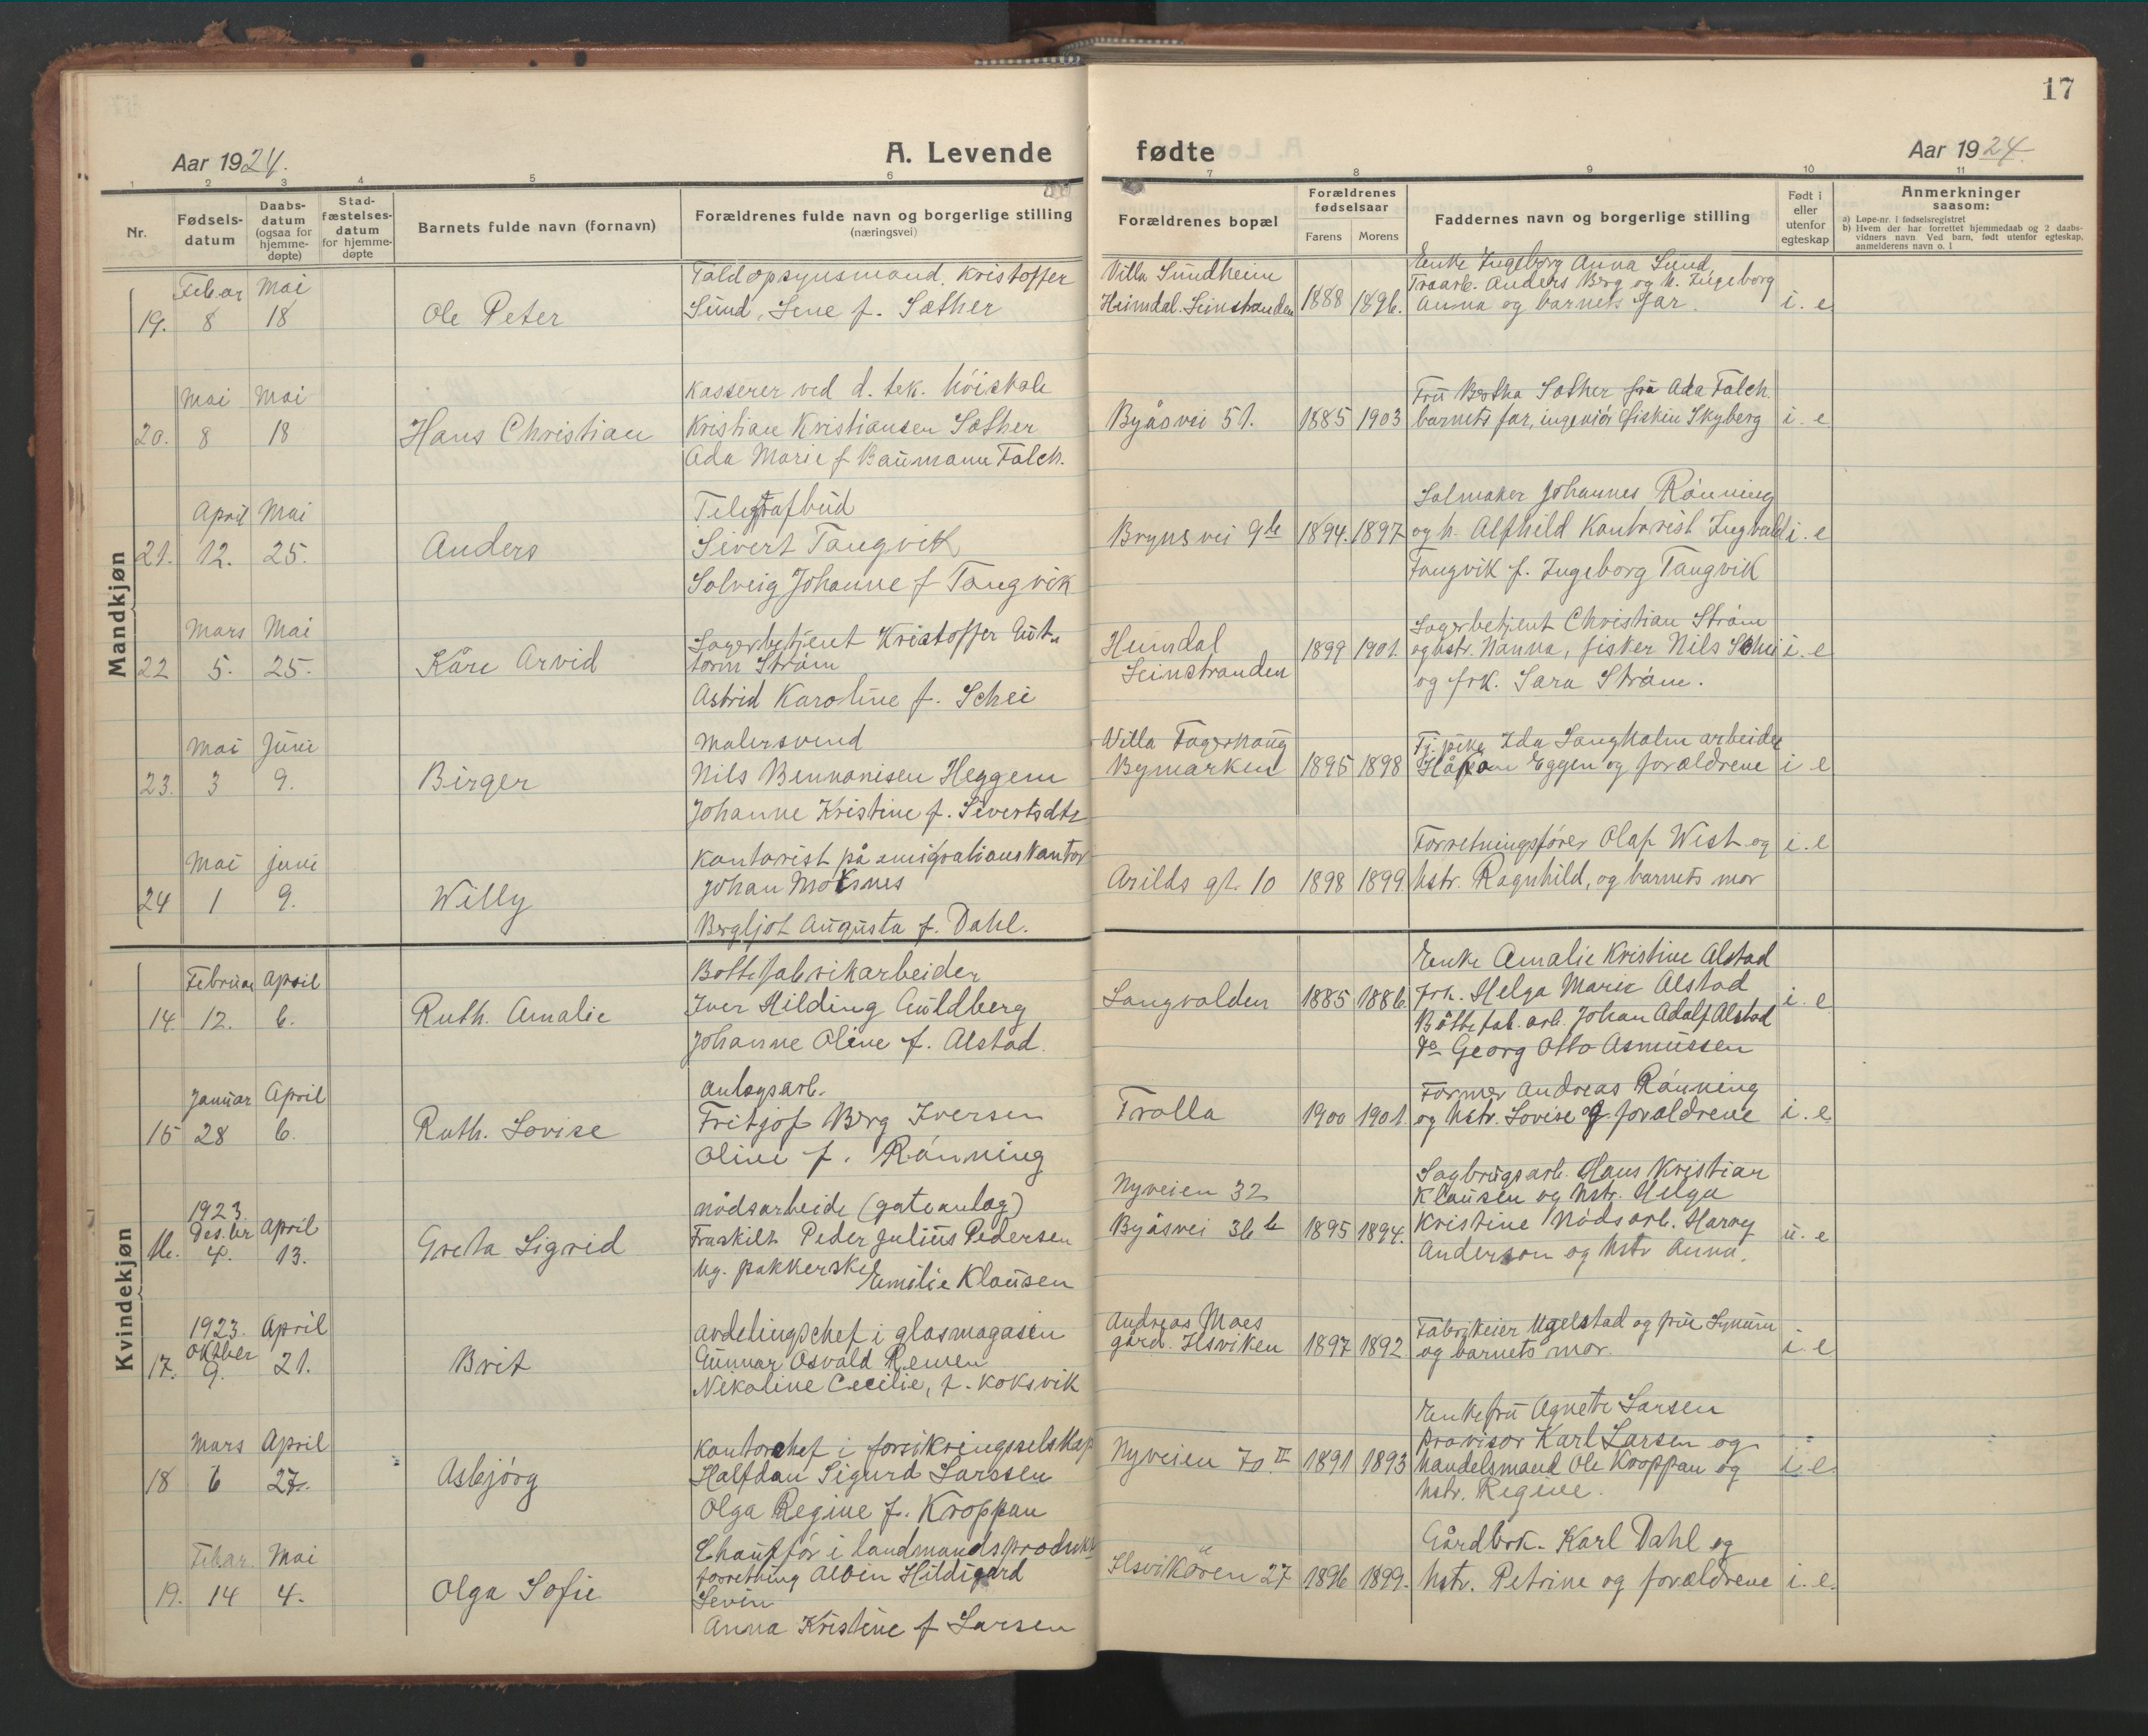 17
Aar 1924.
A. Levende
fødte
Aar 1924.
1 2 3 4 5 6 7 8 9 10 11
Nr.
Fødsels-
datum
Daabs-
datum
(ogsaa for
hjemme-
døpte)
Stad-
fæstelses-
datum
for hjemme-
døpte
Barnets fulde navn (fornavn)
Forældrenes fulde navn og borgerlige stilling
(næringsvei)
Forældrenes bopæl
Forældrenes
fødselsaar
Farens Morens
Faddernes navn og borgerlige stilling
Født i
eller
utenfor
egteskap
Anmerkninger
saasom:
a) Løpe-nr. i fødselsregistret
b) Hvem der har forrettet hjemmedaab og 2 daabs-
vidners navn. Ved barn, født utenfor egteskap,
anmelderens navn o. l
Mandkjøn
19.
Febar
8
Mai
18
Ole Peter
Toldopsynsmand. Kristoffer
Sund, Lene f. Sæther
Villa Sundheim
Heimdal. Leinstranden
1888 1896.
Enke Ingeborg Anna Sund,
Traarb. Anders Berg og h. Ingeborg
Anna og barnets far.
i. e
20.
Mai
8
Mai
18
Hans Christian
Kasserer ved d. tek. höiskole
Kristian Kristiansen Sæther
Ada Marie f Baumann Falch.
Byåsvei 51.
1885 1903
Fru Bertha Sæther fru Ada Falch.
barnets far, ingeniör Skyberg
i. e
21.
April
12.
Mai
25.
Anders
Telegrafbud
Sivert Tangvik
Solveig Johanne f Tangvik
Brynsvei 9b
1894. 1897
Salmaker Johannes Rönning
og h. Alfhild Kontorist Ingvald
Tangvik f. Ingeborg Tangvik
i. e
22
Mars
5.
Mai
25.
Kåre Arvid
Lagerbetjent Kristoffer Gut-
torm Ström
Astrid Karoline f. Schei
Heimdal
Leinstranden
1899 1901.
Lagerbetjent Christian Ström
og hstr. Nanna, fisker Nils Schei
og frk. Sara Ström.
i. e
23.
Mai
3
Juni
9.
Birger
Malersvend
Nils Bennonisen Heggem
Johanne Kristine f. Sivertsdtr
Villa Fagerhaug
Bymarken
1895 1898
Tj. pike Ida Langholm arbeider
Håkon Eggen og forældrene
i e
24
Mai
1
juni
9.
Willy
Kontorist på emigrationskontor
Johan Moksnes
Bergljot Augusta f. Dahl.
Arilds gt. 10
1898 1899.
Forretningsförer Olaf Wist og
hstr. Ragnhild, og barnets mor
i. e
Kvindekjøn
14
Februar
12.
April
6.
Ruth. Amalie
Bøttefabrikarbeider
Iver Hilding Guldberg
Johanne Oline f. Alstad.
Langvolden
1885 1886.
Enke Amalie Kristine Alstad
Frk. Helga Marie Alstad
Bøttefab. arb. Johan Adolf Alstad
do Georg Otto Asmussen
i. e
15
Januar
28
April
6.
Ruth. Lovise
Anlegsarb.
Fritjof Berg Iversen
Oline f. Rönning
Trolla
1900 1901.
Former Andreas Rönning
og hstr. Lovise og forældrene
i. e.
16.
1923.
Des.br
4.
April
13.
Greta Sigrid
nödsarbeide (gateanlag)
Fraskilt Peder Julius Pedersen
Ug. pakkerske
Emilie Klausen
Nyveien 32
Byåsvei 36 b
1895 1894.
Sagbrugsarb. Hans Kristian
Klausen og hstr. Helga
Kristine Nödsarb. Harry
Anderson og hstr Anna.
u. e
17.
1923.
oktber
9.
April
21.
Brit
Avdelingschef i glasmagasin
Gunnar Osvald Remen
Nikoline Cecilie, f. Koksvik
Andreas Moes
gård. Ilsviken
1897 1892.
Fabrikeier Ugelstad og fru
og barnets mor.
i. e.
18
Mars
6
April
27.
Asbjörg
Kontorchef i forsikringsselskap
Halfdan Sigurd Larssen
Olga Regine f. Kroppan
Nyveien 70. II
1891 1893
Enkefru Agnete Larsen
provisor Karl Larsen og
handelsmand Ole Kroppan og
hstr. Regine.
i. e.
19.
Febar.
14
Mai
4.
Olga Sofie
Chauffør i landmandsprodukt
forretning Albin Hildigard
Levin
Anna Kristine f Larsen
Ilsvikören 27
1896 1899.
Gårdbrk. Karl Dahl og
hstr. Petrine og forældrene
i. e.